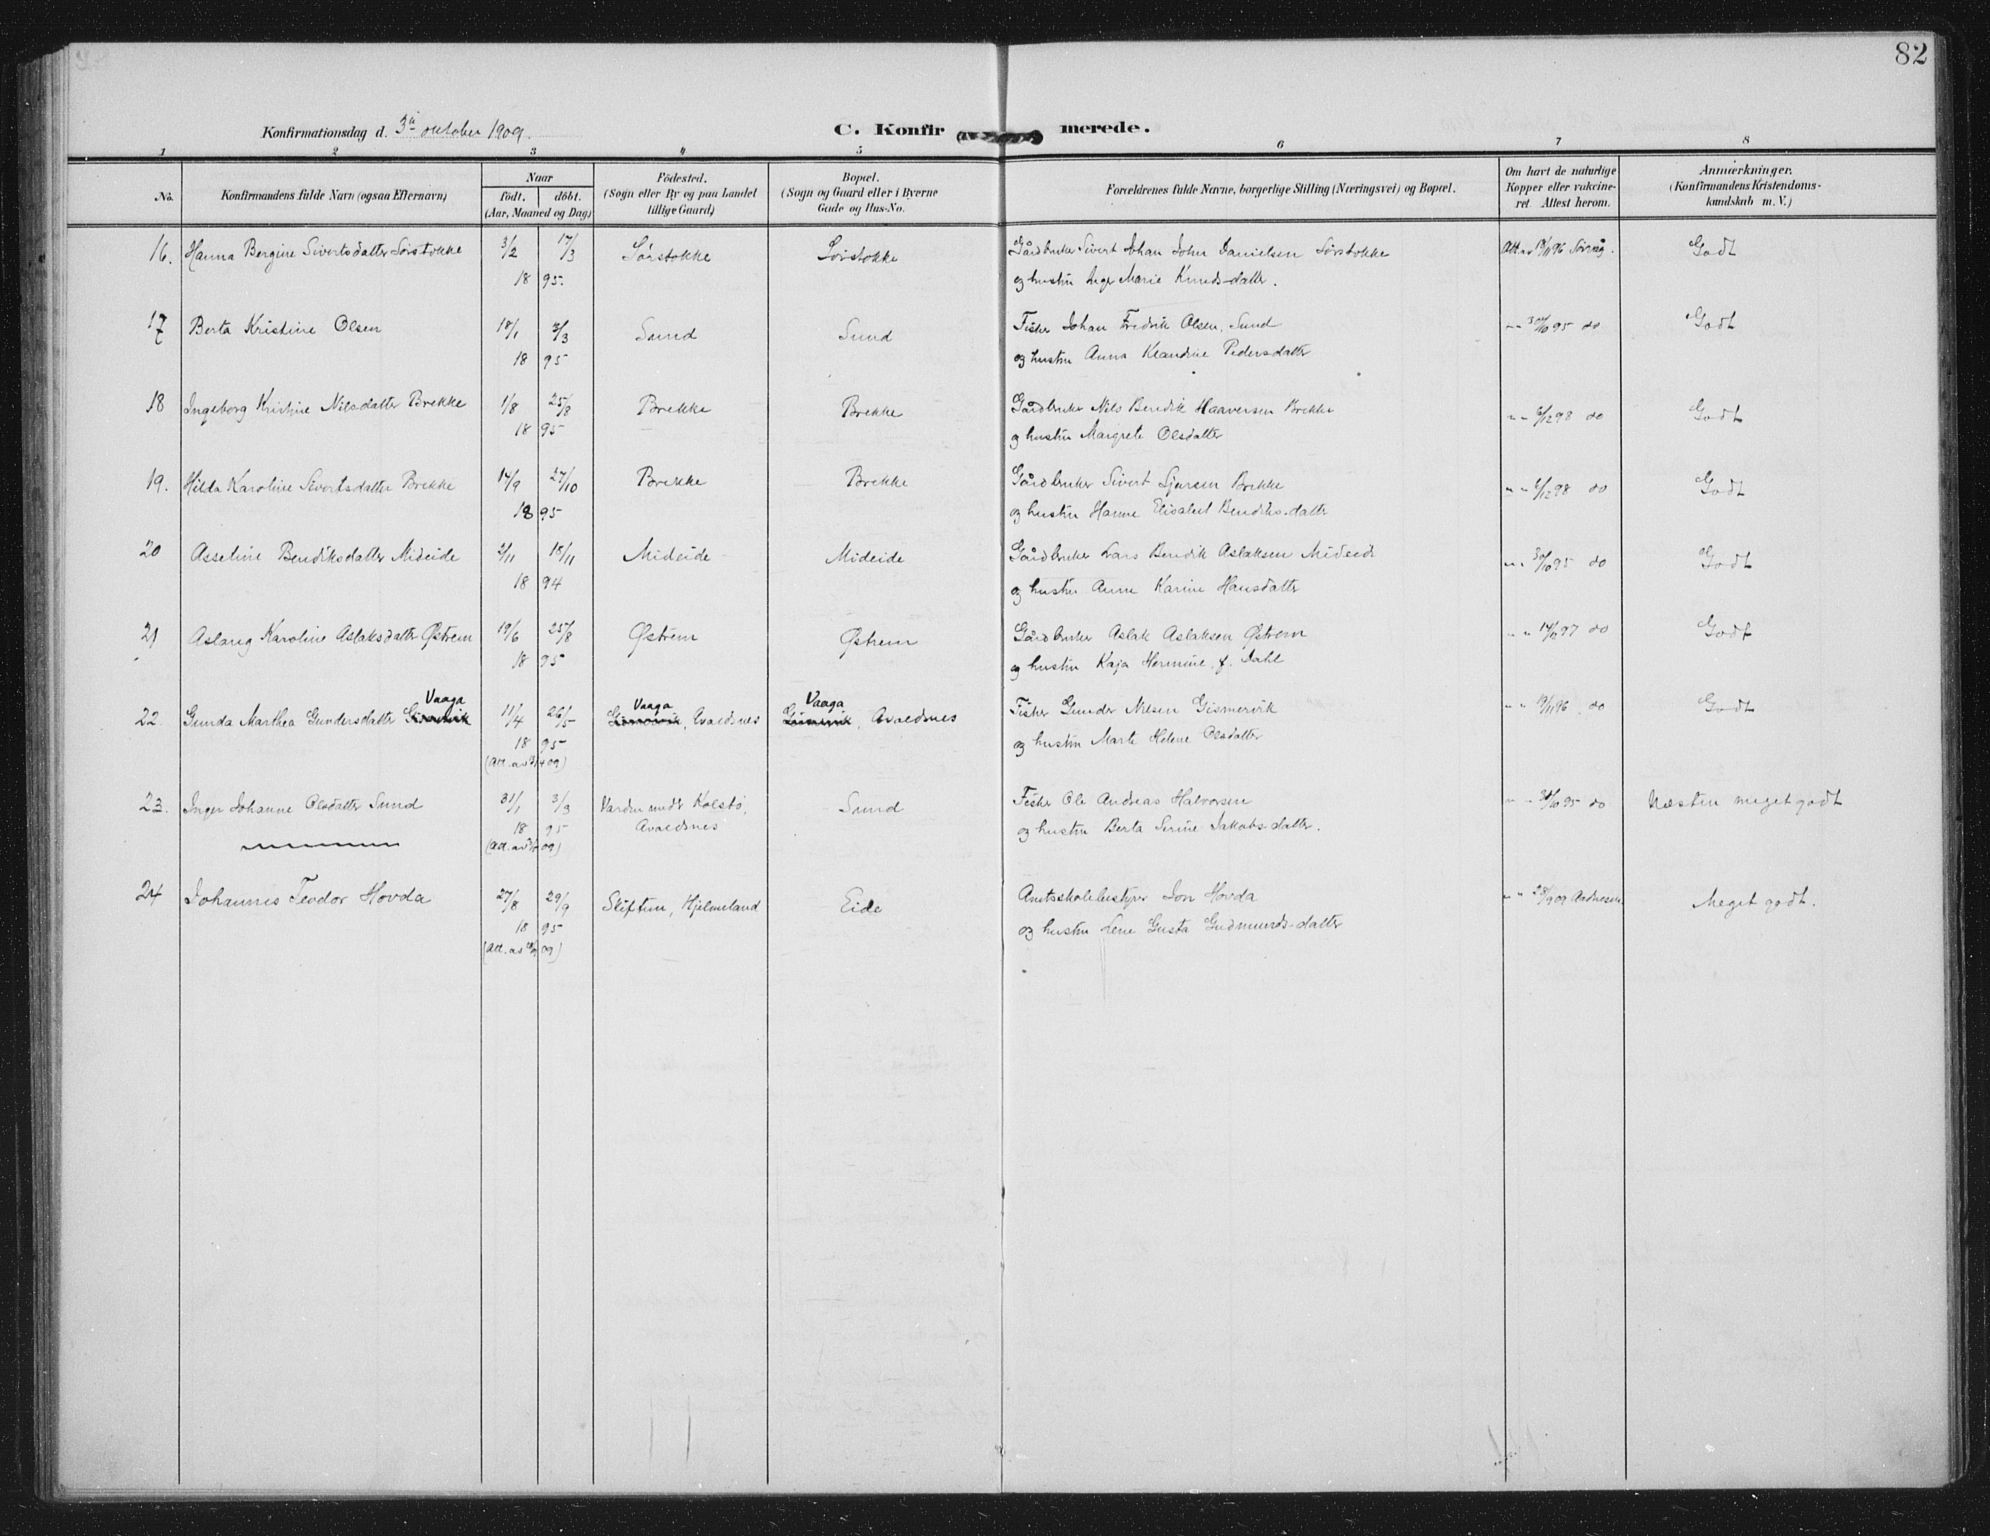 82
Konfirmationsdag d. 3die oktober 1909.
C. Konfirmerede.
1 2 3 4 5 6 7 8
No. Konfirmandens fulde Navn (ogsaa Efternavn)
Naar
født. døbt.
(Aar, Maaned og Dag)
Fødested.
(Sogn eller By og paa Landet
tillige Gaard)
Bopæl.
(Sogn og Gaard eller i Byerne
Gade og Hus-No.
Forældrenes fulde Navne, borgerlige Stilling (Næringsvei) og Bopæl.
Om havt de naturlige
Kopper eller vakcine-
ret. Attest herom.
Anmærkninger.
(Konfirmandens Kristendoms-
kundskab m. V.)
16. Hanna Bergine Sivertsdatter Sørstokke 3/2 17/3 Sørstokke Sørstokke Gårdbruker Sivert Johan John Danielsen Sørstokke Godt
18 95 og hustru Inger Marie Knuds-datter.
17 Berta Kristine Olsen 18/1 3/3 Sund Sund Fisker Johan Fredrik Olsen, Sund 95 do Godt
18 95 og hustru Anna Keandrine Pedersdatter
18 Ingeborg Kristine Nilsdatter Brekke 1/8 25/8 Brekke Brekke Gårdbruker Nils Bendik Haaversen Brekke 6/12 98 do Godt
18 95 og hustru Margrete Olsdatter
19. Hilda Karoline Sivertsdatter Brekke 14/9 27/10 Brekke Brekke Gårdbruker Sivert Sjursen Brekke 6/12 98 do Godt
18 95 og hustru Hanne Elisabet Bendiks-datter
20 Asseline Bendiksdatter Mideide 2/11 18/11 Mideide Mideide Gårdbruker Lars Bendik Aslaksen Mideide 30/10 95 do Godt
18 94 og hustru Anne Karine Hansdatter
21 Aslaug Karoline Aslaksdatter Østrem 19/6 25/8 Østrem Østrem Gårdbruker Aslak Aslaksen Østrem 97 do Godt
18 95 og hustru Kaja Hermine f. Dahl
Vaaga Vaaga Vaaga
22. Gunda Marthea Gundersdatter Gismervik 11/4 26/5 Gismervik, Avaldsnes Gismervik, Avaldsnes Fisker Gunder Nilsen Gismervik 96 do Godt
18 95 og hustru Marte Helene Olsdatter
(Att. av 09)
23. Inger Johanne Olsdatter Sund 31/1 3/3 Varden under Kolstø, Sund Fisker Ole Andreas Halvorsen 30/10 95 do Næsten meget godt
18 95 Avaldsnes og hustru Berta Serine Jakobs-datter.
(Att. av 09)
24 Johannes Teodor Hovda 27/8 29/9 Sliftun, Hjelmeland Eide Amtsskolebestyrer Jon Hovda Meget godt.
18 95 og hustru Lene Gusta Gudmunds-datter
(Att. av 09)